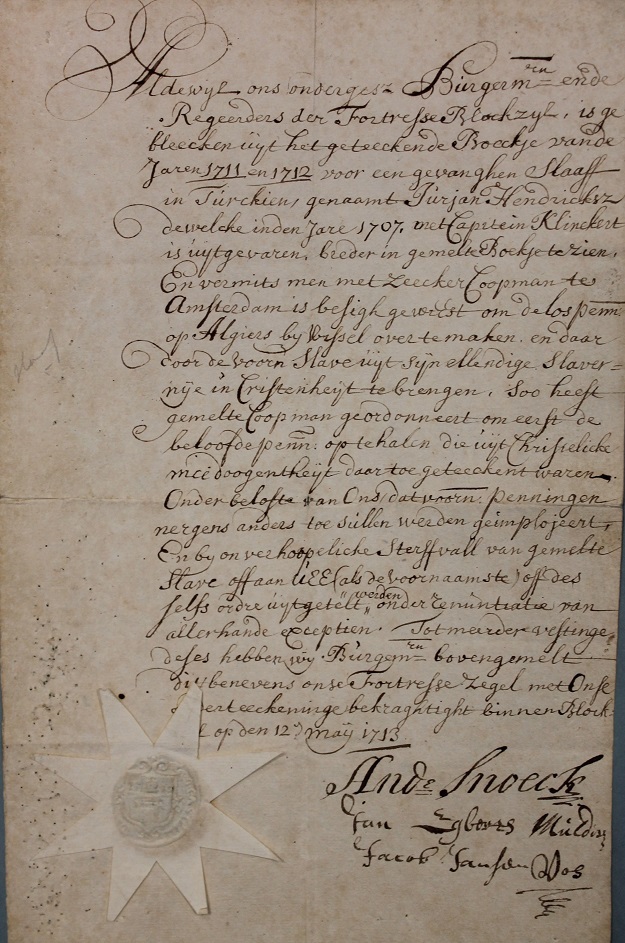 Aldewyl ons ondergesz Burgerm ren ende
Regeerders der Fortresse Blockzyl, is ge
bleecken uyt het geteeckende Boeckje vande
Jaren 1711 en 1712 voor een gevanghen Slaaff
in Turckien, genaamt Jurjan Hendricksz
dewelke inden Jare 1707. met Capitein Klinckert
is uytgevaren, breder in gemelte Boekje te zien.
En vermits men met zeecker Coopman te
Amsterdam is besigh geweest om de lospenn:
op Algiers by Wissel over te maken. en daar
door de voorn Slave uyt syn ellendige Slaver=
nye in Cristenheyt te brengen. Soo heeft
gemelte Coopman geordonneert om eerst de
beloofde penn: op te halen die uyt Christelicke
meedoogentheyt daar toe geteeckent waren
Onder belofte van Ons, dat voorn: penningen
nergens anders toe sullen werden geimplojeert,
En by onverhoopelicke Sterffvall van gemelte
Slave off aan UEE (als de voornaamste) off des
selfs ordre uytgetelt werden onder renuntiatie van
allerhande exceptien. Tot meerder vestinge
deses hebben wy Burgem ren bovengemelt
dit benevens onse Fortresse Zegel met Onse
verteeckeninge bekraghtight binnen Block
l op den 12 May 1713
And: Snoeck
Jan Egberts Mulder
Jacob Jansen Vos